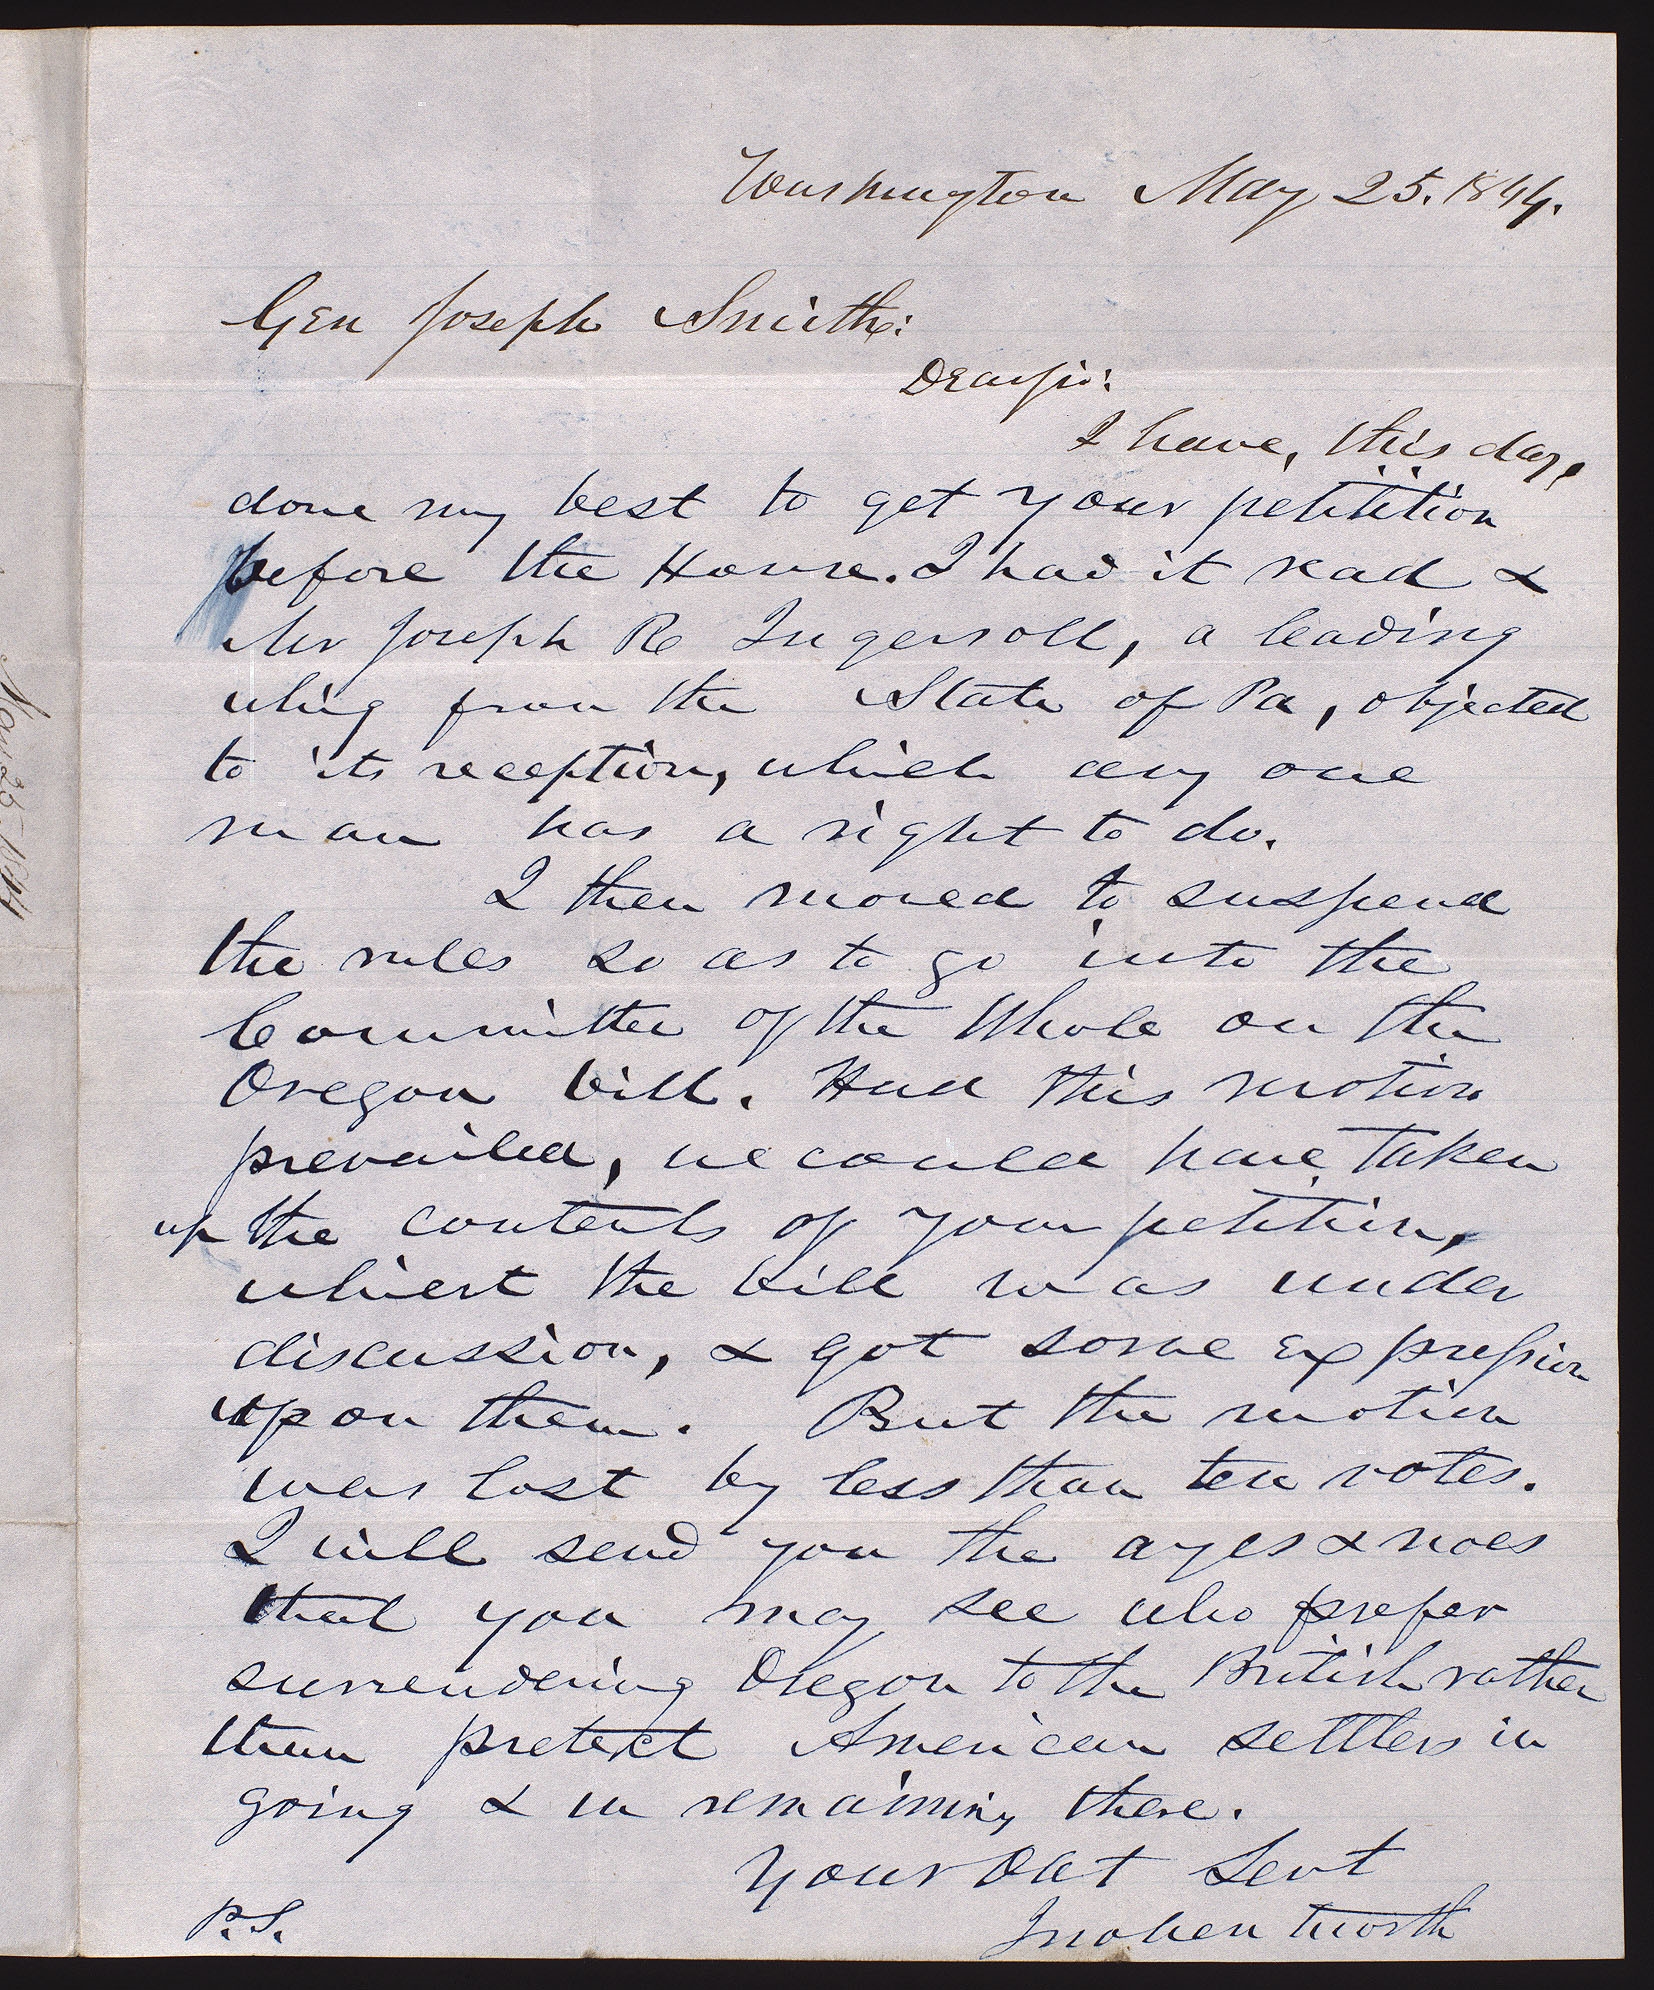 Washington May 25. 1844.
Gen Joseph Smith:
Dear Sir:
I have, this day,
done my best to get your petitition
before the House. I had it read &
Mr Joseph R Ingersoll, a leading
whig from the State of Pa, objected
to its reception, which any one
man has a right to do.
I then moved to suspend
the rules so as to go into the
Committee of the Whole on the
Oregon bill. Had this motion
prevailed, we could have taken
up the contents of your petition,
whilest the bill was under
discussion, & got some expression
upon them. But the motion
was lost by less than ten votes.
I will send you the ayes & noes
that you may see who prefer
surrendering Oregon to the British rather
than protect American settlers in
going & in remaining there.
Your Obt Servt
Jno Wentworth
P.S.
May 25 1844